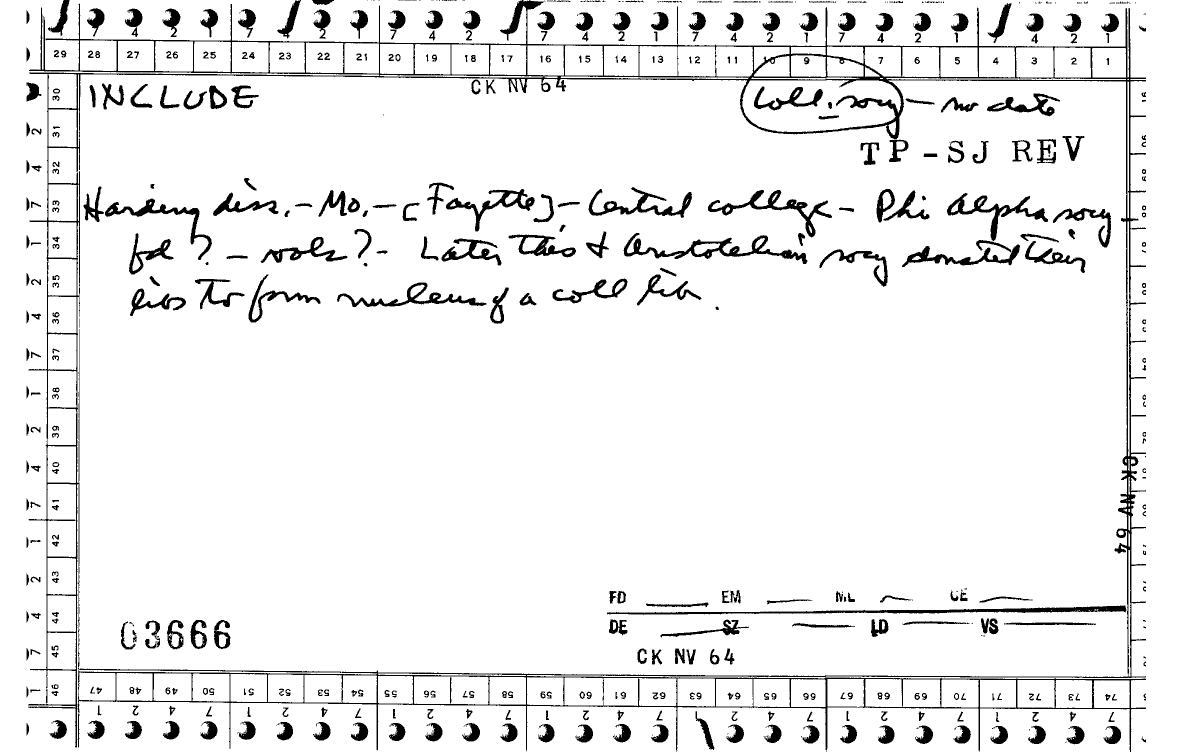 29 28 27 26 25 24 23 22 21 20 19 18 17 16 15 14 13 12 11 10 9 8 7 6 5 4 3 2 1
CK NV 64
INCLUDE
Coll. socy - no date
TP-SJ REV
Harding diss. - Mo. - [Fayette] - Central college - Phi Alpha socy -
fd ? - vols ? - Later this & Aristotelian socy donated their
libs to form nucleus of a coll lib.
30
31
32
33
34
35
36
37
38
39
40
41
42
43
44
45
46
CK NV 64
FD EM ML CE
DE SZ LD VS
03666
CK NV 64
47 48 49 50 51 52 53 54 55 56 57 58 59 60 61 62 63 64 65 66 67 68 69 70 71 72 73 74